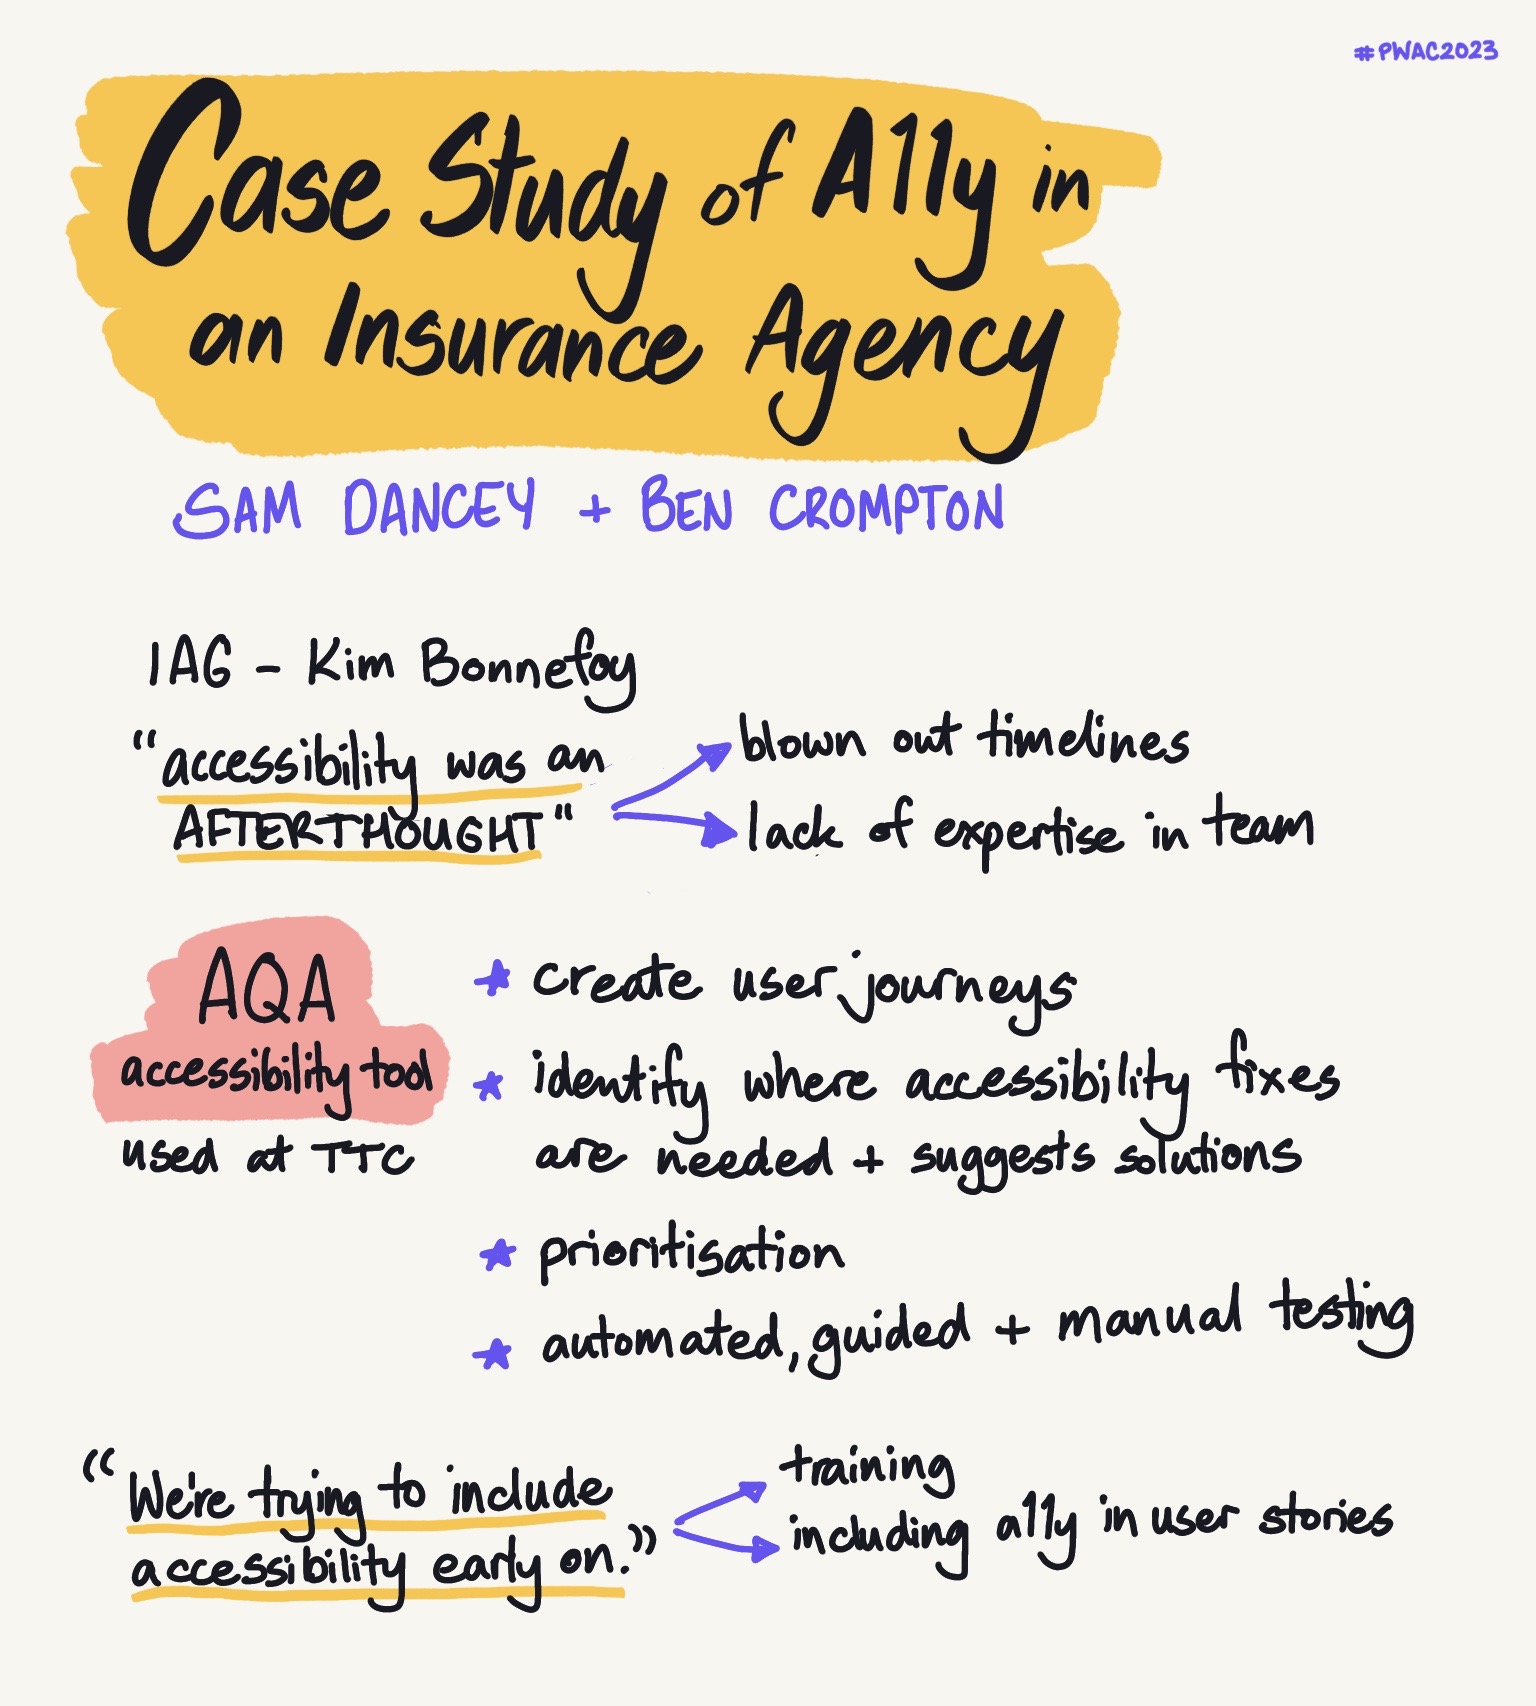 #PWAC2023
Case Study of A11y in
an Insurance Agency
SAM DANCEY + BEN CROMPTON
IAG - Kim Bonnefoy
"accessibility was an
AFTERTHOUGHT"
blown out timelines
lack of expertise in team
AQA
accessibility tool
used at TTC
★ create user journeys
★ identify where accessibility fixes
are needed + suggests solutions
★ prioritisation
★ automated, guided + manual testing
"We're trying to include
accessibility early on."
training
including a11y in user stories